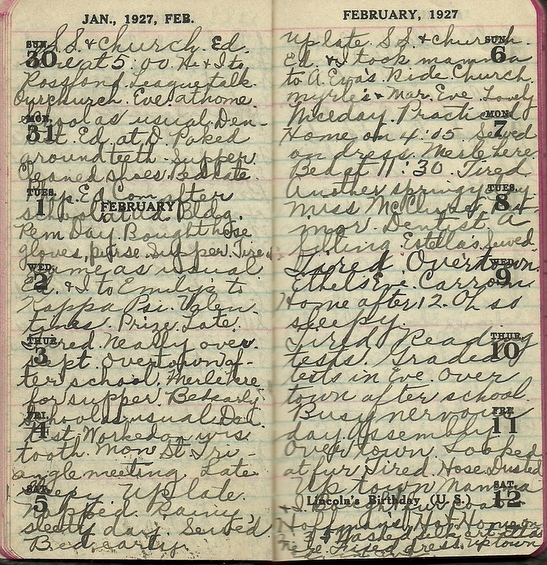 JAN., 1927, FEB.
SUN. 30
S.S. & Church. Ed.
at 5:00. H & I to
Rossford League talk.
Our church. Eve. at home.
MON. 31
School as usual. Den-
tist. Ed. at D. Poked
around teeth. Supper.
Cleaned shoes. Bed late.
TUES. 1
FEBRUARY
Up. Ed Com. after
school at Ad. Bldg.
Rem Day. Bought hose
gloves, purse. Supper. Tired.
WED. 2
Same as usual
& I to Emily's to
Kappa Psi. Valen-
tines. Prize. Late.
THUR. 3
Tired. Nearly over
slept. Overtown af-
ter school. Merle here
for supper. Bed early.
FRI. 4
School as usual. Den-
tist. Worked on wis.
tooth. Mon St. Tri-
angle meeting. Late
SAT. 5
Sleepy. Up late.
Napped. Rainy,
sleety day. Sewed
Bed early.
FEBRUARY, 1927
SUN. 6
Up late. S.S. & church.
Ed. & I took mamma
to A. Eva's. Ride. Church.
Myrle's & Mar. Eve. Lovely
MON. 7
Nice day. Practice
Home on 4:05. Sewed
on dress. Merle here.
Bed at 11:30. Tired.
TUES. 8
Another springy day
Miss McClure
Dentist. A-
filling. Estella's. Sewed.
WED. 9
Tired. Overtown.
Ethel's Eve.
Home after 12. Oh so
sleepy.
THUR. 10
Tired. Reading
tests. Graded
tests in Eve. Over
town after school.
FRI. 11
Busy nervous
day. Assembly
Overtown. Looked
at fur. Tired. Hose. Dusted
SAT. 12
Lincoln's Birthday (U. S.)
Up town Mamma
& I. Bought fur coat
Hoffman's. Hot. Home on
3:45. Washed
Fixed dress. Uptown